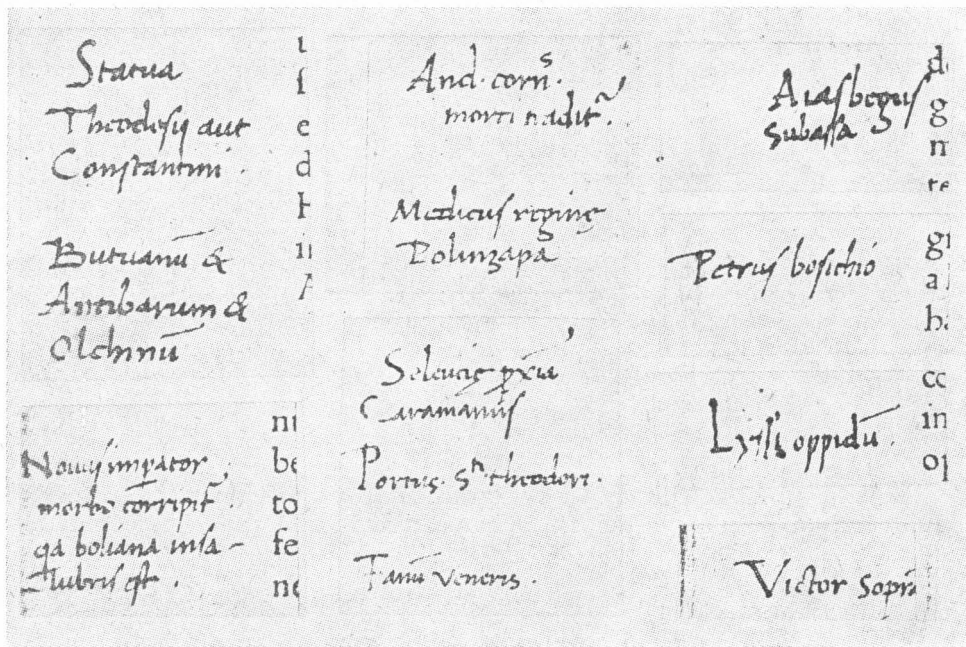 Statua
Theodosij aut
Constantini .
Butuanū &
Antibarum &
Olchinū
Nouus impator
morbo corripit
qa boliana insa-
lubris est .
And . corn̄s .
morti tradit̃ .
Medicus reginę
Polinzapa
Seleucię
Caramanus
Portus . S^ti theodori .
Fanū Veneris .
Aiasbegus
Subassa
Petrus bosichio
Lyssi oppidū .
Victor Sopr
ni
be
to
fe
ne